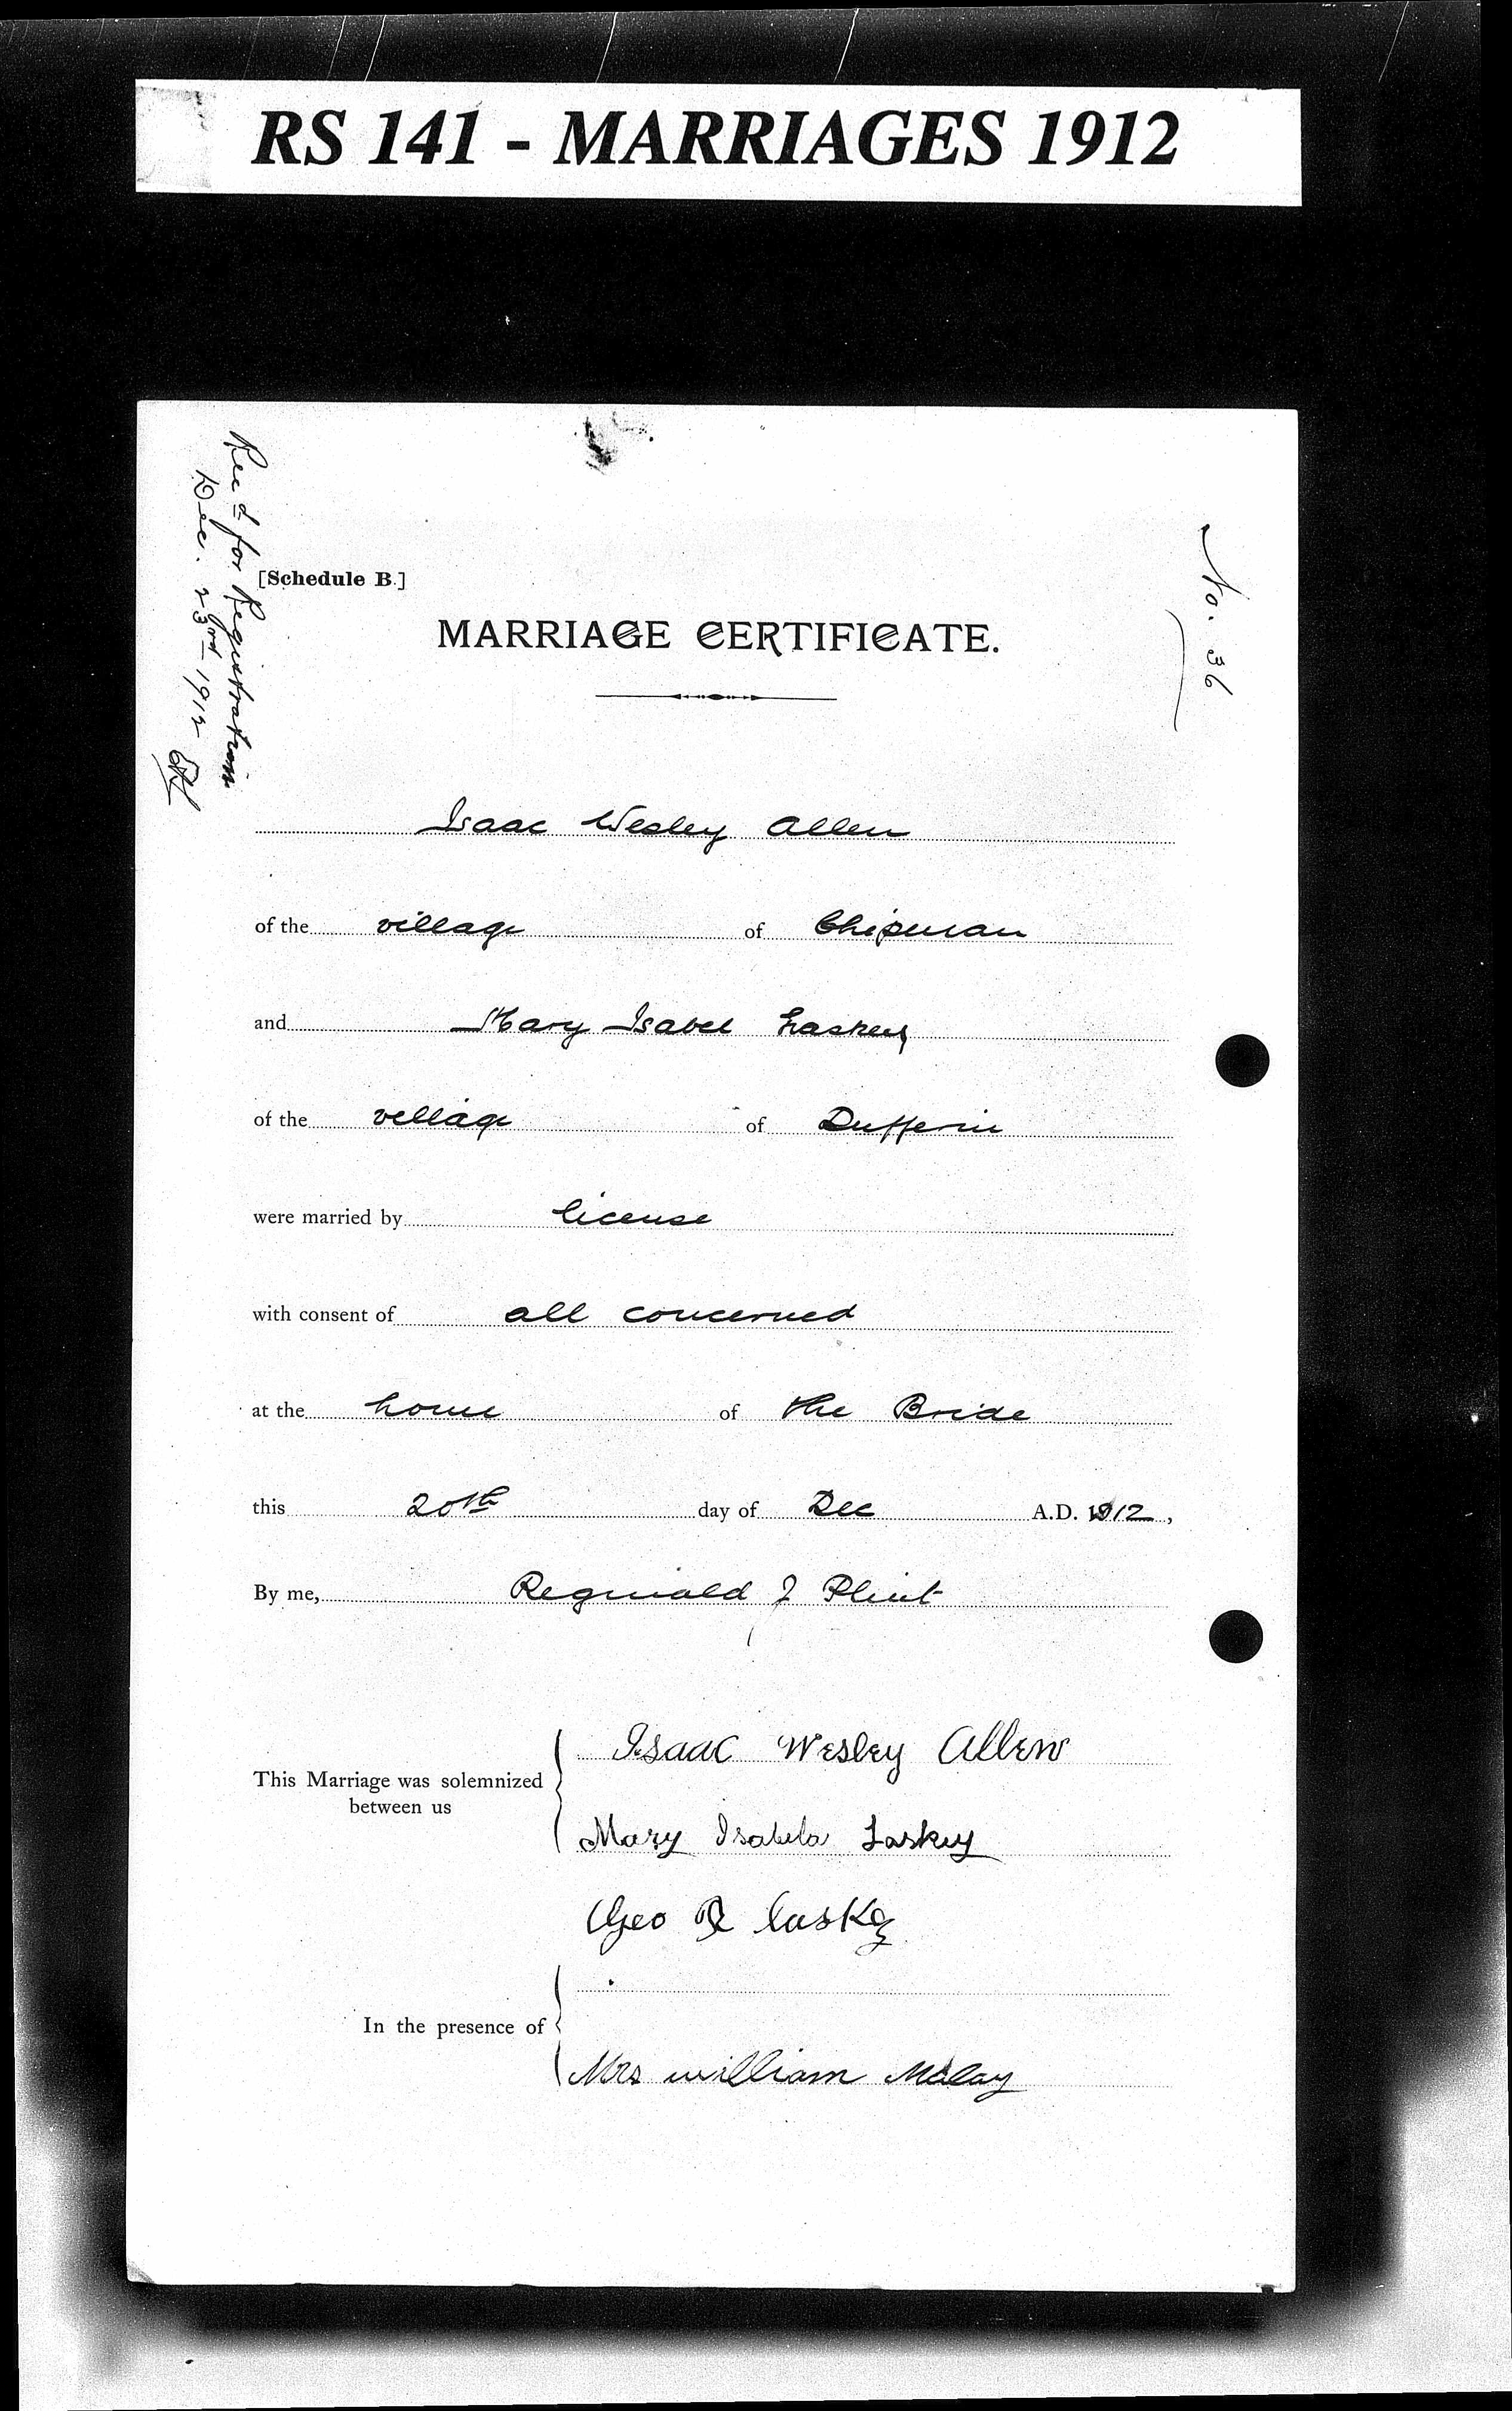 RS 141 - MARRIAGES 1912
Rec'd for Registration
Dec. 23rd 1912
No. 36
[Schedule B.]
MARRIAGE CERTIFICATE.
Isaac Wesley Allen
of the village of Chipman
and Mary Isabel Laskey
of the village of Dufferin
were married by license
with consent of all concerned
at the home of the Bride
this 20th day of Dec A.D. 1912,
By me, Reginald J Plint
This Marriage was solemnized between us
Isaac Wesley Allen
Mary Isabela Laskey
Geo R Laskey
In the presence of
Mrs william